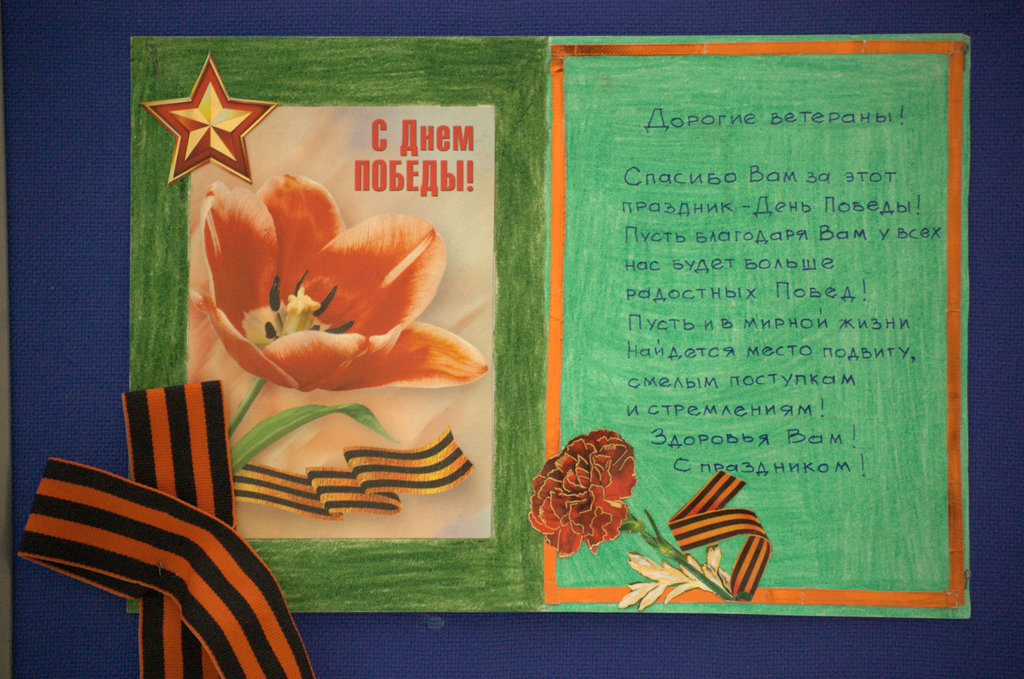 С Днем
ПОБЕДЫ!
Дорогие ветераны!
Спасибо Вам за этот
праздник - День Победы!
Пусть благодаря Вам у всех
нас будет больше
радостных Побед!
Пусть и в мирной жизни
Найдется место подвигу,
смелым поступкам
и стремлениям!
Здоровья Вам!
С праздником!